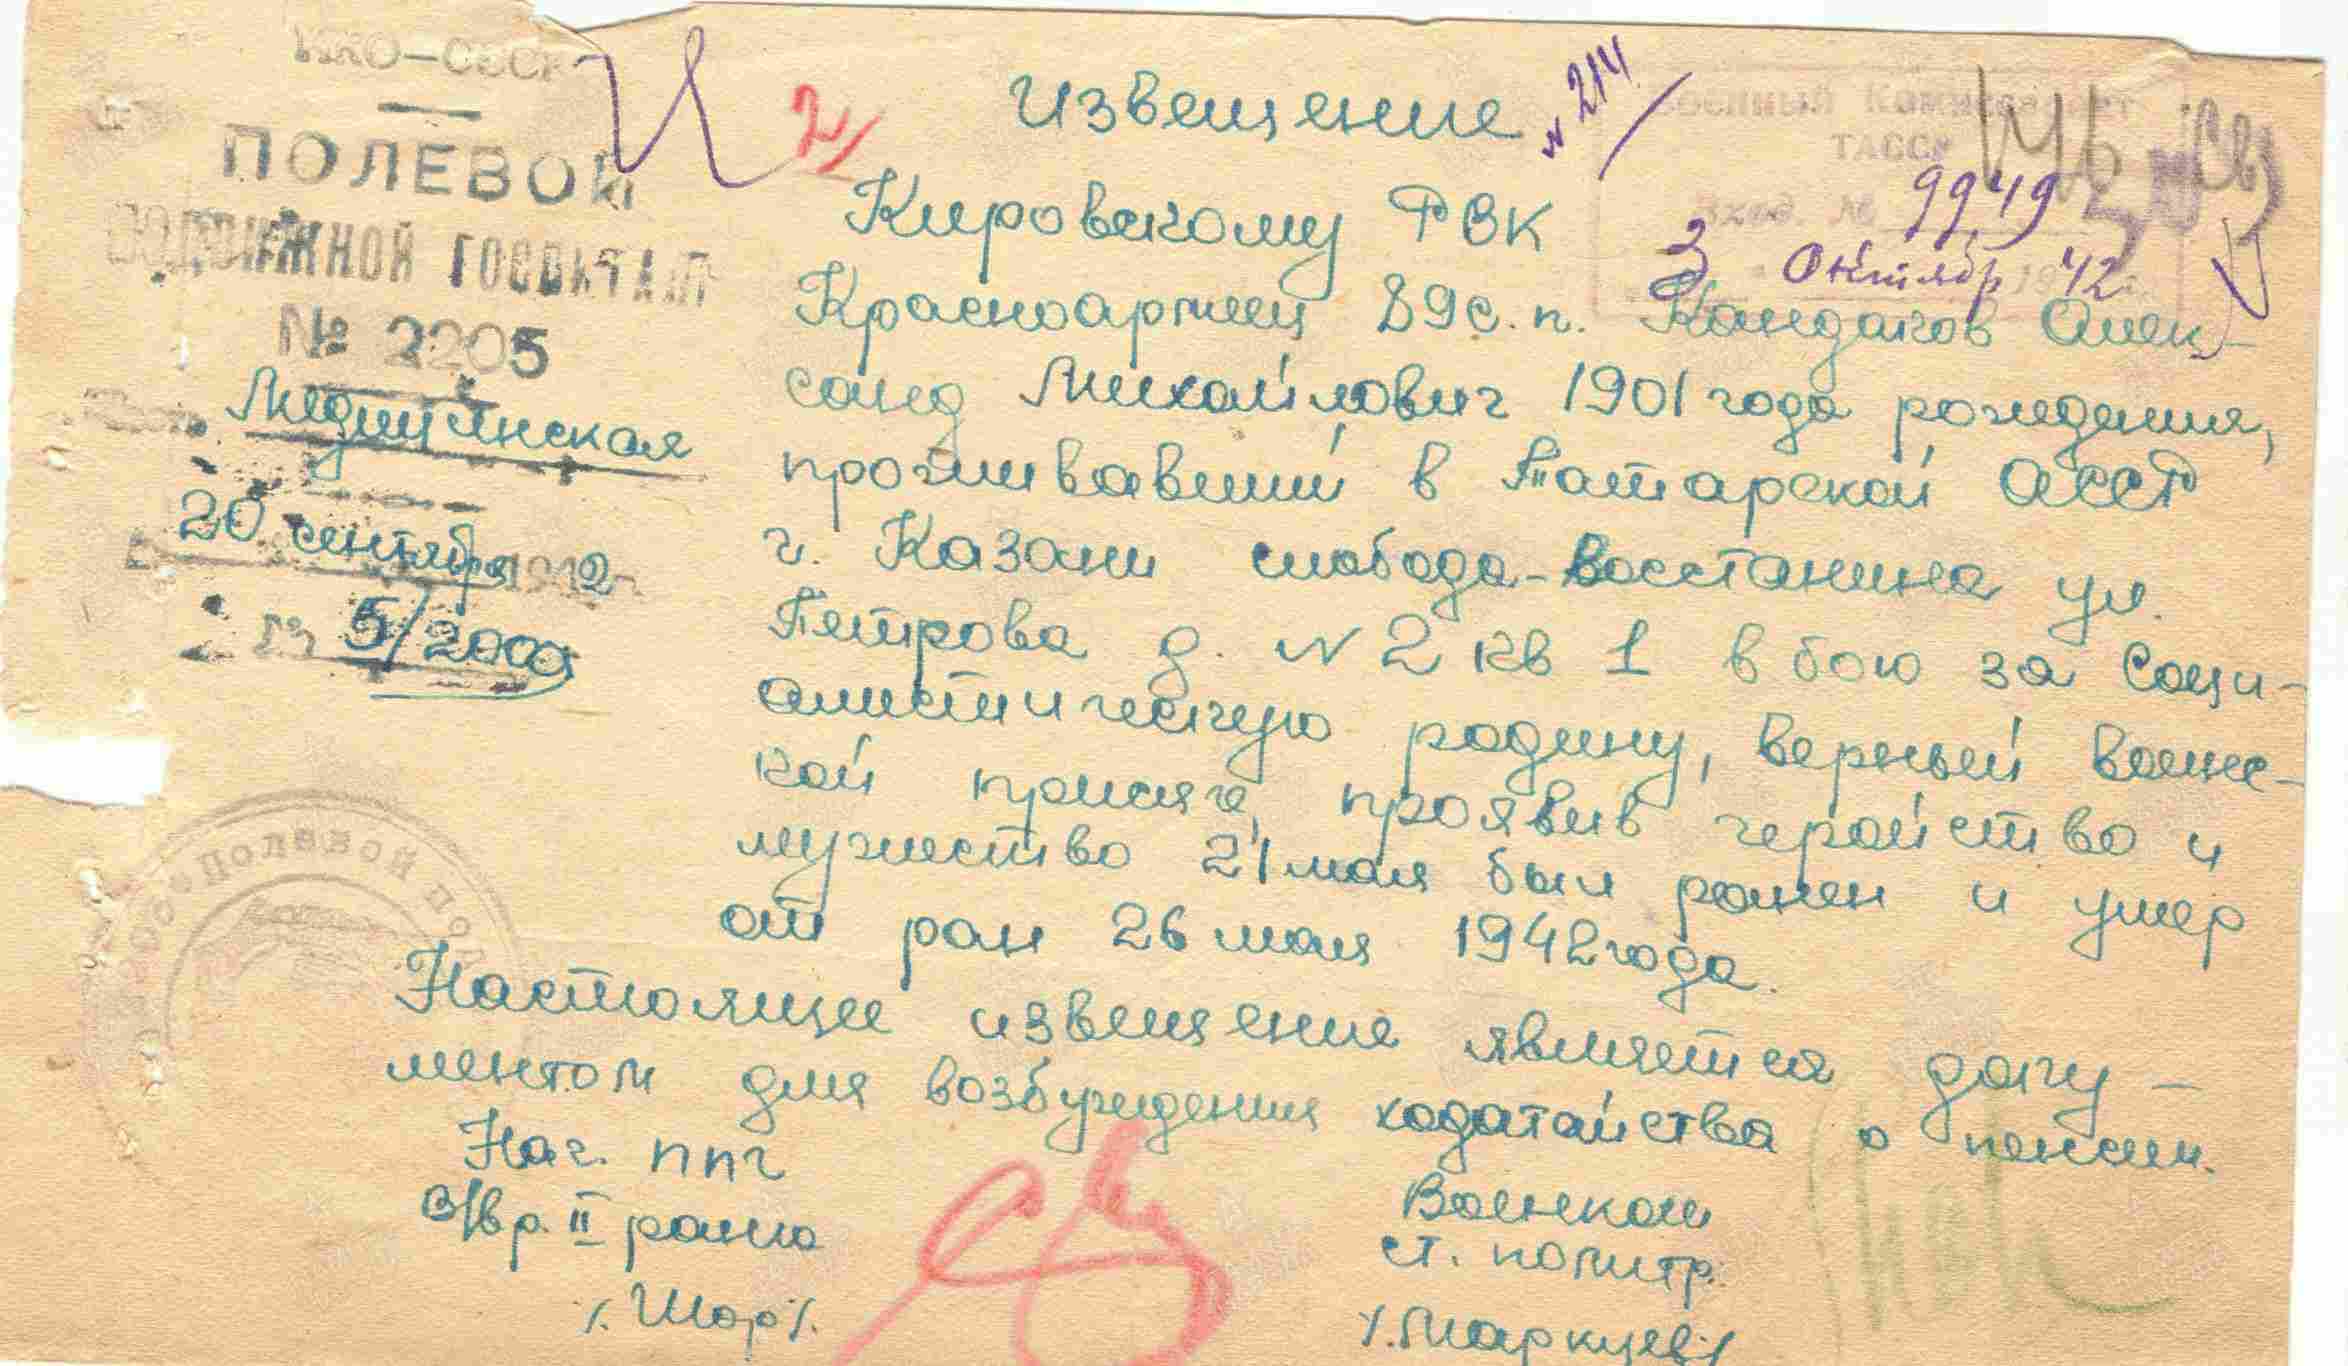 НКО-СССР
ПОЛЕВОЙ
ПОДВИЖНОЙ ГОСПИТАЛ
№ 2205
Медицинская
20 сентября 1942 г.
№ 5/2000
Полевой под
Извещение № 214
2/
Военный Комиссариат
ТАССР
Вход № 9949
3 Октябр 1942 г.
Кировскому РВК
Красноармеец 89 с.п. Кандаков Алек-
санд Михайлович 1901 года рождения,
проживавший в Татарской АССР
г. Казани слобода-Восстанина ул.
Петрова д. № 2 кв 1 в бою за Соци-
алистическую родину, верный воинс-
кой присяге, проявив геройство и
мужество 21 мая был ранен и умер
от ран 26 мая 1942 года.
Настоящее извещение является доку-
ментом для возбуждения ходатайства о пенсии.
Нач. ппг
в/вр. II ранга
/.Шор/.
Военком
ст. политр.
/.Маркуев/